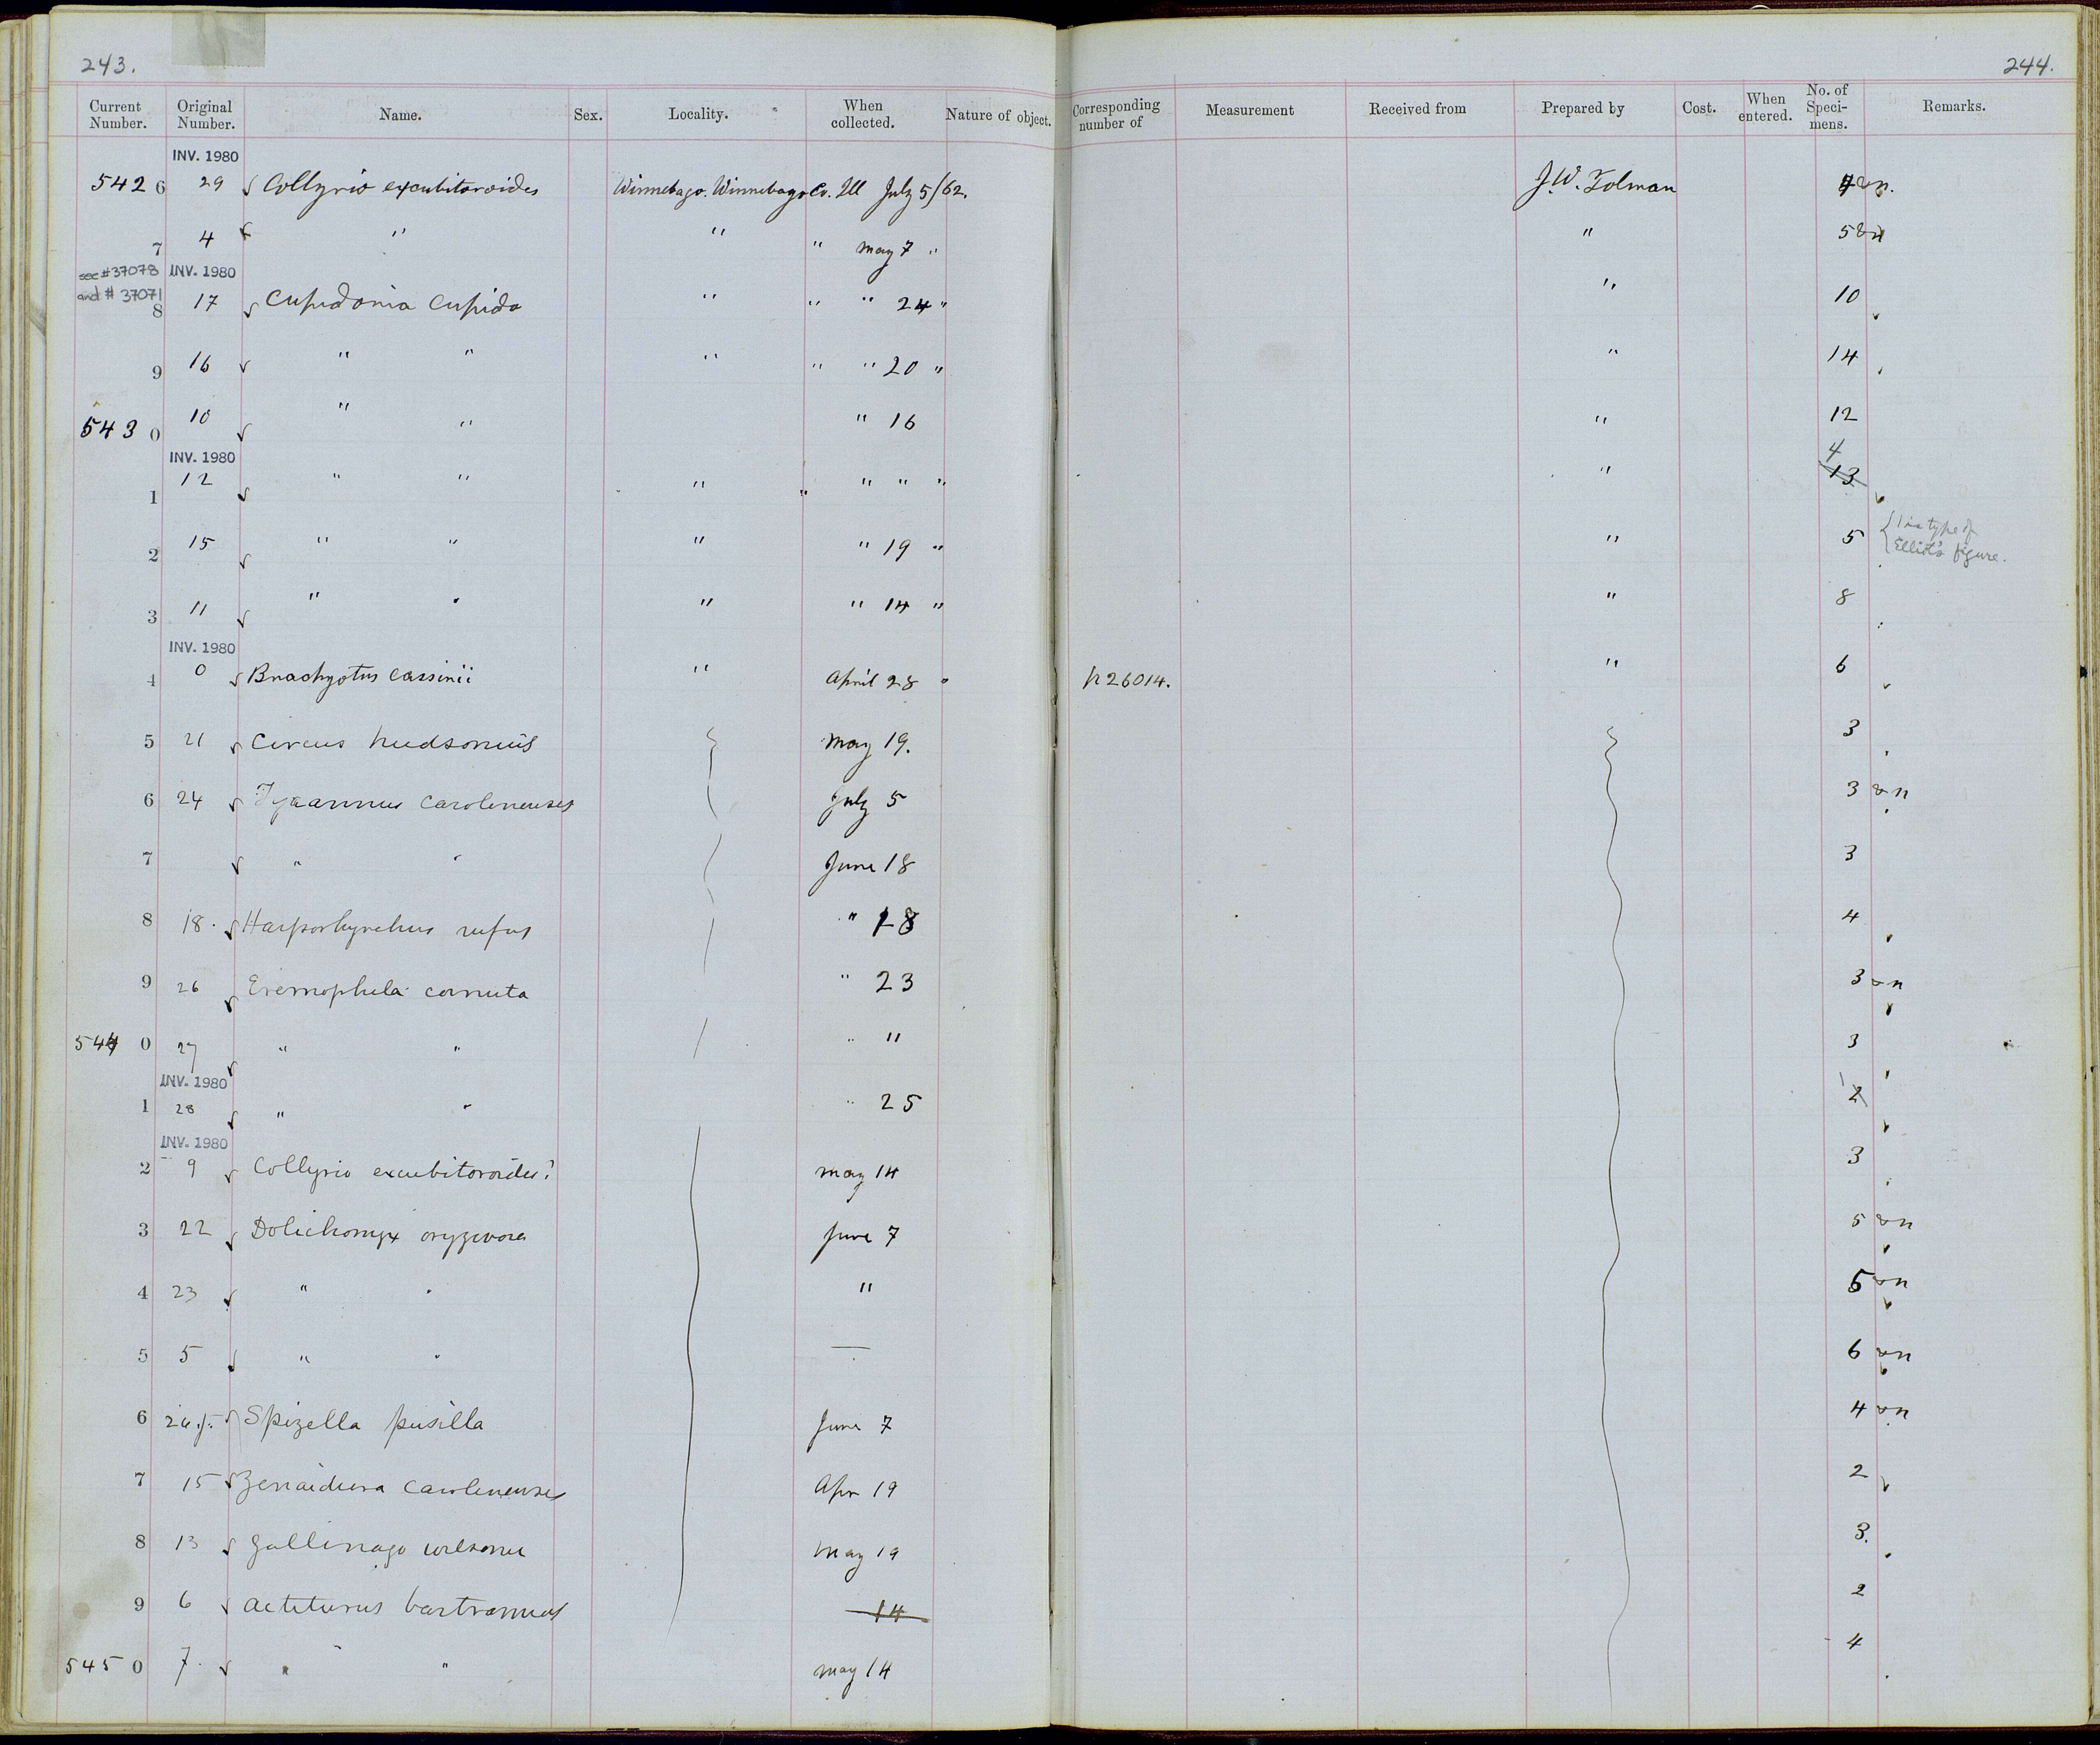 243.
244.
Current Number. Original Number. Name. Sex. Locality. When collected. Nature of object. Corresponding number of Measurement Received from Prepared by Cost. When entered. No. of Speci-mens. Remarks.
INV. 1980
5426 29 Collyrio excubitoroides Winnebago. Winnebago Co. Ill July 5/62. J.W. Tolman &n.
7 4 " " " May 7 " " 5 &n
see #37078 INV. 1980
and # 37071
8 17 Cupidonia cupido " " " 24 " " 10
9 16 " " " " " 20 " " 14
5430 10 " " " 16 " 12
INV. 1980
1 12 " " " " " " " " 4 13
2 15 " " " " 19 " " 5 { 1 is type of Elliot's figure.
3 11 " " " " 14 " " 8
INV. 1980
4 0 Brachyotus cassinii " April 28 " 26014. " 6
5 21 Circus hudsonius May 19. 3
6 24 Tyrannus carolinensis July 5 3 &n
7 " " June 18 3
8 18. Harporhynchus rufus " 18 4
9 26 Eremophila cornuta " 23 3 &n
5440 27 " " " " 3
INV. 1980
1 28 " " " 25 1 2
INV. 1980
2 9 Collyrio excubitoroides? May 14 3
3 22 Dolichonyx oryzivora June 7 5 &n
4 23 " " " 5 &n
5 5 " " — 6 &n
6 Spizella pusilla June 7 4 &n
7 15 Zenaidura carolinensis Apr 19 2
8 13 Gallinago wilsonii May 19 3.
9 6 Actiturus bartramius 14 2
5450 7. " " May 14 4